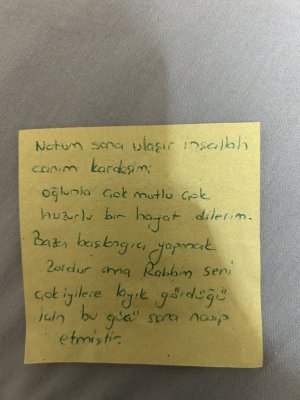 Notum sana ulaşır inşallah
canım kardeşim;
oğlunla çok mutlu çok
huzurlu bir hayat dilerim.
Bazı başlangıcı yapmak
zordur ama Rabbim seni
çok iyilere layık gördüğü
için bu gücü sana nasip
etmiştir.